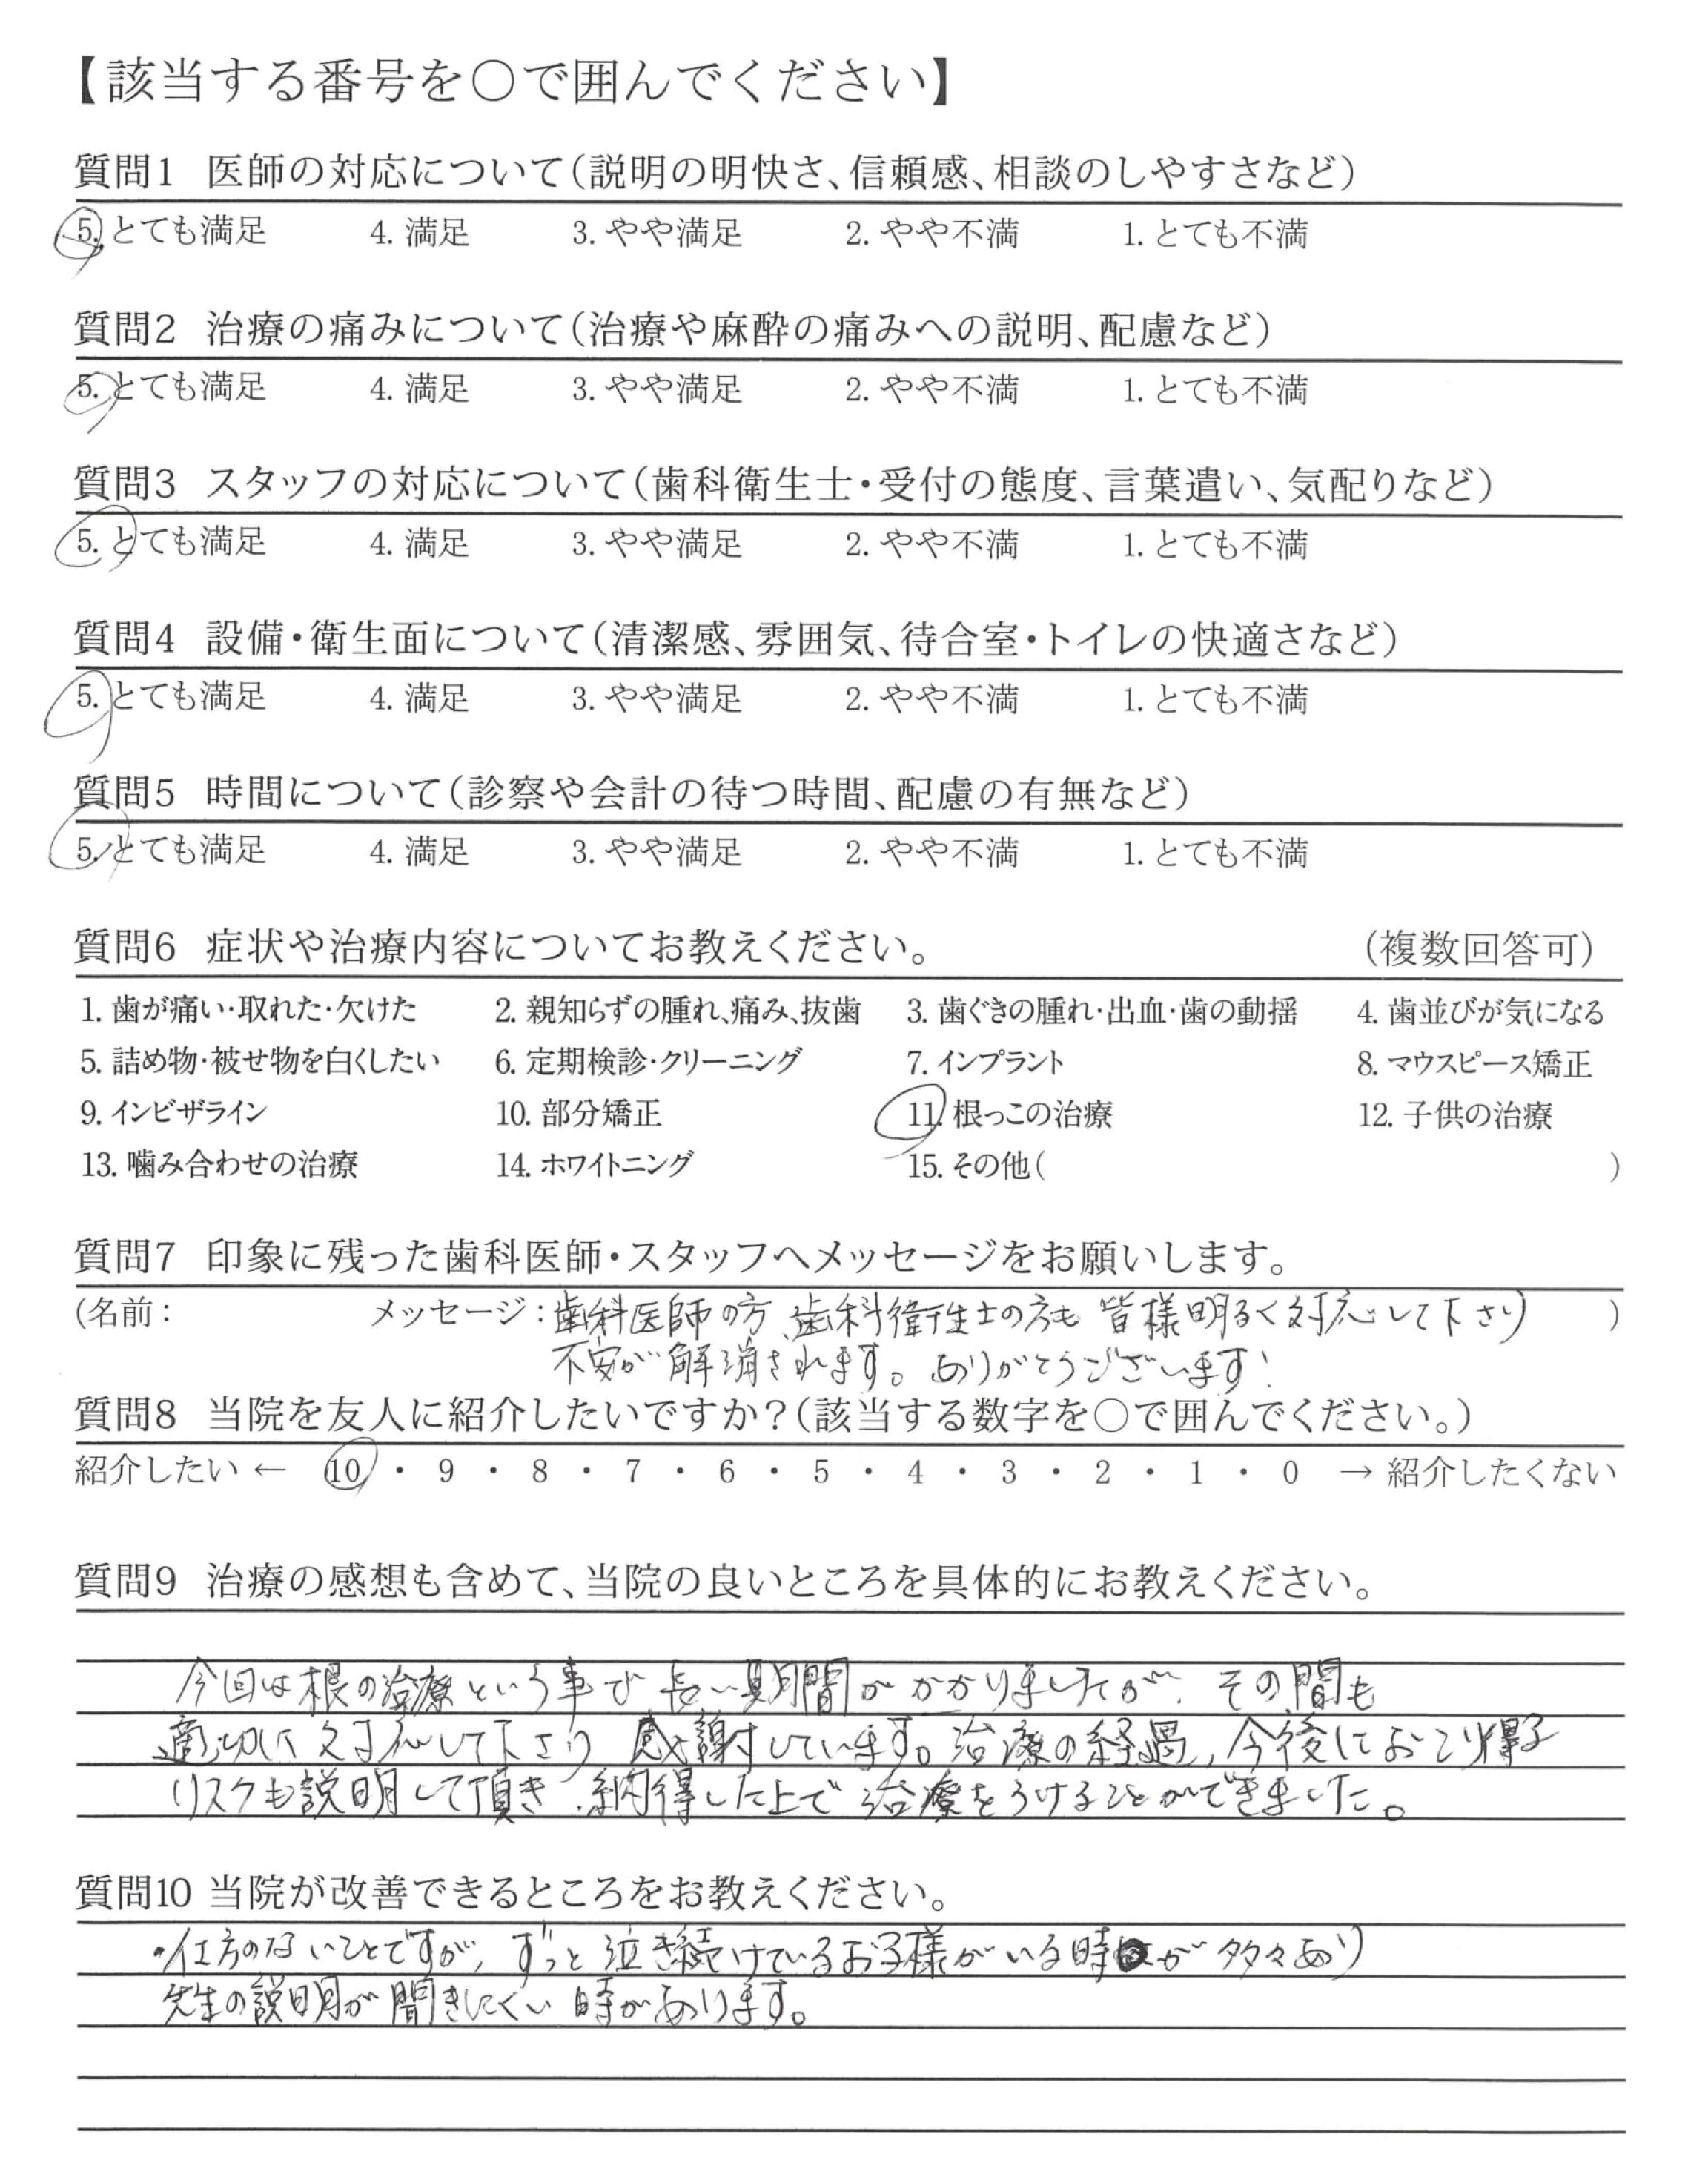 【該当する番号を○で囲んでください】
質問1 医師の対応について(説明の明快さ、信頼感、相談のしやすさなど)
5. とても満足 4. 満足 3. やや満足 2. やや不満 1. とても不満
質問2 治療の痛みについて(治療や麻酔の痛みへの説明、配慮など)
5. とても満足 4. 満足 3. やや満足 2. やや不満 1. とても不満
質問3 スタッフの対応について(歯科衛生士・受付の態度、言葉遣い、気配りなど)
5. とても満足 4. 満足 3. やや満足 2. やや不満 1. とても不満
質問4 設備・衛生面について(清潔感、雰囲気、待合室・トイレの快適さなど)
5. とても満足 4. 満足 3. やや満足 2. やや不満 1. とても不満
質問5 時間について(診察や会計の待つ時間、配慮の有無など)
5. とても満足 4. 満足 3. やや満足 2. やや不満 1. とても不満
質問6 症状や治療内容についてお教えください。 (複数回答可)
1. 歯が痛い・取れた・欠けた 2. 親知らずの腫れ、痛み、抜歯 3. 歯ぐきの腫れ・出血・歯の動揺 4. 歯並びが気になる
5. 詰め物・被せ物を白くしたい 6. 定期検診・クリーニング 7. インプラント 8. マウスピース矯正
9. インビザライン 10. 部分矯正 11. 根っこの治療 12. 子供の治療
13. 噛み合わせの治療 14. ホワイトニング 15. その他( )
質問7 印象に残った歯科医師・スタッフへメッセージをお願いします。
(名前: メッセージ:歯科医師の方、歯科衛生士の方も 皆様明るく対応して下さり )
不安が解消されます。ありがとうございます!
質問8 当院を友人に紹介したいですか?(該当する数字を○で囲んでください。)
紹介したい ← 10 ・ 9 ・ 8 ・ 7 ・ 6 ・ 5 ・ 4 ・ 3 ・ 2 ・ 1 ・ 0 → 紹介したくない
質問9 治療の感想も含めて、当院の良いところを具体的にお教えください。
今回は根の治療という事で 長い期間がかかりましたが、その間も
適切に対応して下さり 感謝しています。治療の経過、今後におこり得る
リスクも説明して頂き、納得した上で 治療をうけることができました。
質問10 当院が改善できるところをお教えください。
・仕方のないことですが、ずっと泣き続けているお子様がいる時が 多々あり
先生の説明が聞きにくい時があります。